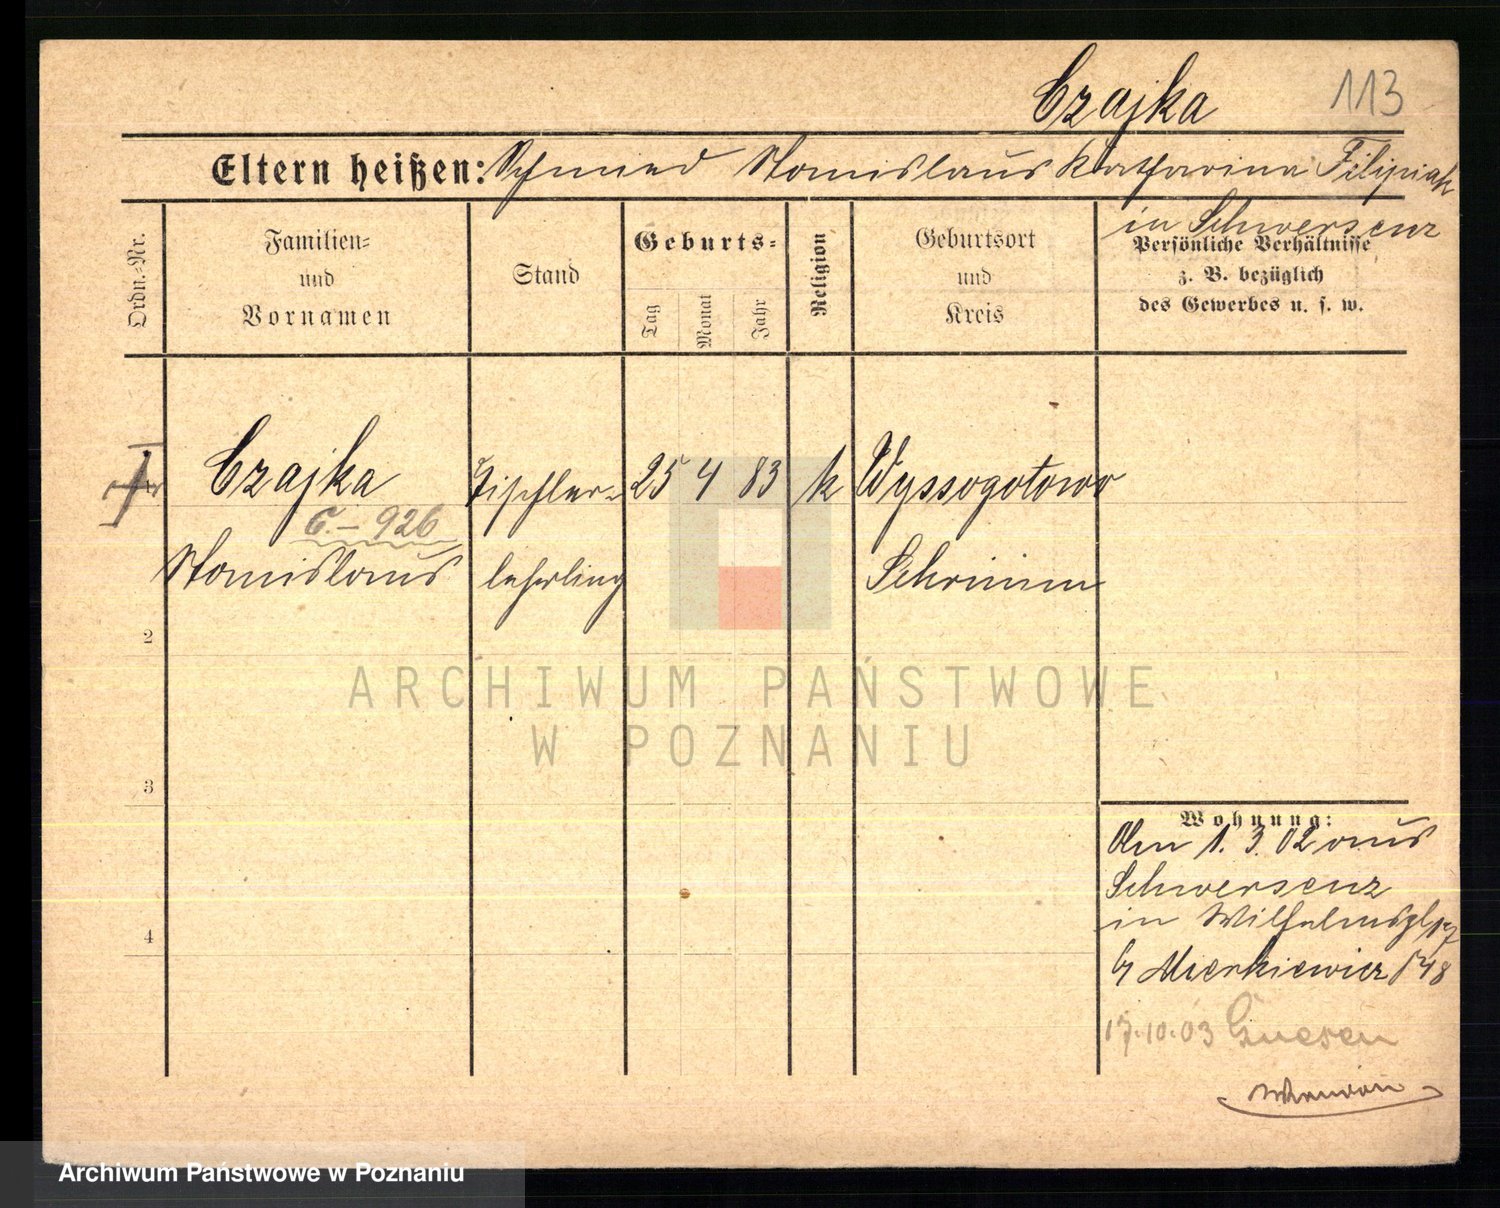 Czajka 113
Eltern heißen: Schmied Stanislaus Katharina Filipiak
in Schwersenz
Ordn.-Nr.
Familien-
und
Vornamen
Stand
Geburts-
Tag
Monat
Jahr
Religion
Geburtsort
und
Kreis
Persönliche Verhältnisse
z. B. bezüglich
des Gewerbes u. s. w.
Czajka Tischler- 25 4 83 k Wyssogotowo
C. – 926
Stanislaus lehrling Schrimm
2
3
4
ARCHIWUM PAŃSTWOWE
W POZNANIU
Wohnung:
Am 1. 3. 02 aus
Schwersenz
in Wilhelmspl 17
b/ Mierkiewicz
17.10.03 Gnesen
Archiwum Państwowe w Poznaniu